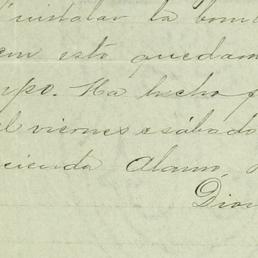 instalar la bom
en esto quedam
po. Ha hecho f
el viernes e sábado
cienda Alamo,
Dio